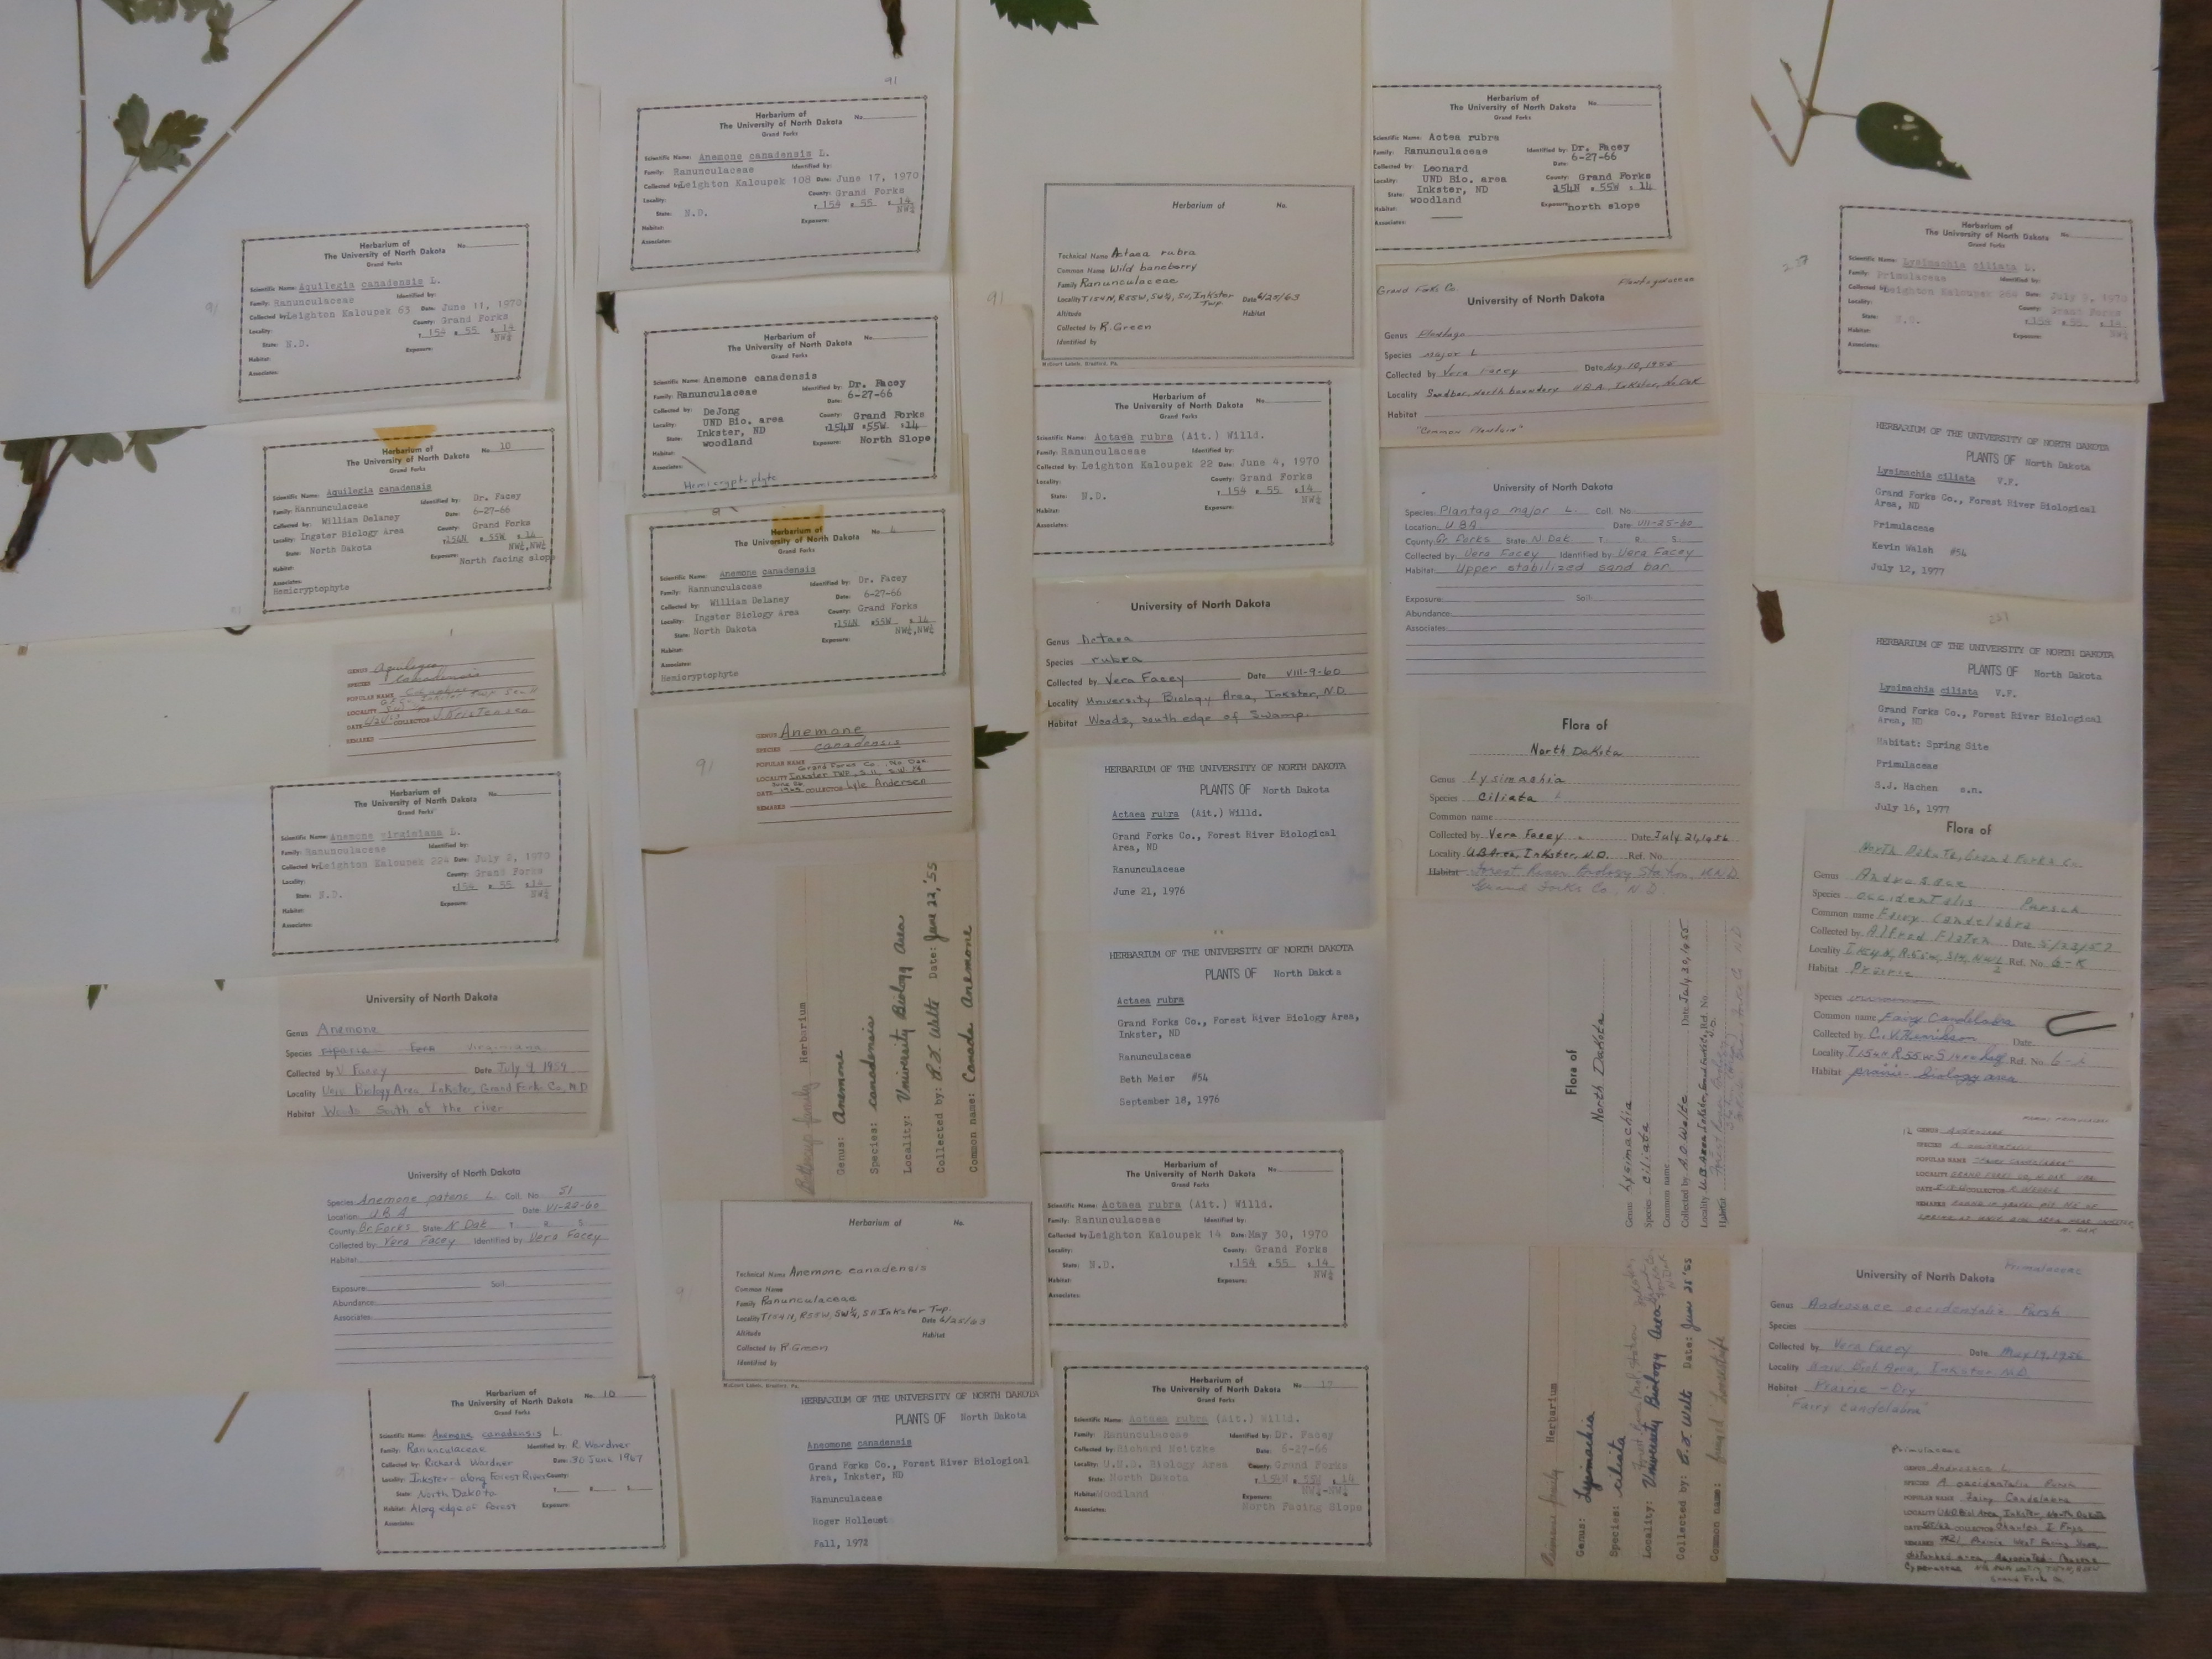 Herbarium of
The University of North Dakota No.
Grand Forks
Scientific Name: Aquilegia canadensis L.
Family: Ranunculaceae Identified by:
Collected by: Leighton Kaloupek 63 Date: June 11, 1970
Locality: County: Grand Forks
State: N.D. T 154 R 55 S 14
NW¼
Habitat: Exposure:
Associates:
91
Herbarium of
The University of North Dakota No. 10
Grand Forks
Scientific Name: Aquilegia canadensis
Family: Rannunculaceae Identified by: Dr. Facey
Collected by: Willian Delaney Date: 6-27-66
Locality: Ingster Biology Area County: Grand Forks
State: North Dakota T 154N R 55W S 14
NW¼,NW¼
Habitat: Exposure: North facing slope
Associates:
Hemicryptophyte
GENUS Aquilegia
SPECIES canadensis
POPULAR NAME
LOCALITY
DATE COLLECTOR
REMARKS
Herbarium of
The University of North Dakota No.
Grand Forks
Scientific Name: Anemone virginiana L.
Family: Ranunculaceae Identified by:
Collected by: Leighton Kaloupek 224 Date: July 2, 1970
Locality: County: Grand Forks
State: N.D. T 154 R 55 S 14
NW¼
Habitat: Exposure:
Associates:
University of North Dakota
Genus Anemone
Species riparia Fern virginiana
Collected by V Facey Date July 9, 1959
Locality Univ Biology Area, Inkster, Grand Forks Co, N.D
Habitat Woods south of the river
University of North Dakota
Species: Anemone patens L. Coll. No. 51
Location: U.B.A Date: VI-22-60
County: Gr Forks State: N Dak T. R. S.
Collected by: Vera Facey Identified by: Vera Facey
Habitat:
Exposure: Soil:
Abundance:
Associates:
Herbarium of
The University of North Dakota No. 10
Grand Forks
Scientific Name: Anemone canadensis L.
Family: Ranunculaceae Identified by: R. Wardner
Collected by: Richard Wardner Date: 30 June 1967
Locality: Inkster - along Forest River County:
State: North Dakota T R S
Habitat: Along edge of forest Exposure:
Associates:
91
Herbarium of
The University of North Dakota No.
Grand Forks
Scientific Name: Anemone canadensis L.
Family: Ranunculaceae Identified by:
Collected by: Leighton Kaloupek 108 Date: June 17, 1970
Locality: County: Grand Forks
State: N.D. T 154 R 55 S 14
NW¼
Habitat: Exposure:
Associates:
Herbarium of
The University of North Dakota No.
Grand Forks
Scientific Name: Anemone canadensis
Family: Ranunculaceae Identified by: Dr. Facey
Collected by: DeJong Date: 6-27-66
Locality: UND Bio. area County: Grand Forks
Inkster, ND T 154N R 55W S 14
State: woodland Exposure: North Slope
Habitat:
Associates:
Hemicryptophyte
Herbarium of
The University of North Dakota No.
Grand Forks
Scientific Name: Anemone canadensis
Family: Rannunculaceae Identified by: Dr. Facey
Collected by: Willian Delaney Date: 6-27-66
Locality: Ingster Biology Area County: Grand Forks
State: North Dakota T 154N R 55W S 14
NW¼,NW¼
Habitat: Exposure:
Associates:
Hemicryptophyte
91
GENUS Anemone
SPECIES canadensis
POPULAR NAME
Grand Forks Co. No. Dak.
LOCALITY Inkster TWP, S. 11, SW ¼
DATE June 26 1963 COLLECTOR Lyle Andersen
REMARKS
Buttercup family Herbarium
Genus: Anemone
Species: canadensis
Locality: University Biology Area
Collected by: Date: June 22, '55
Common name: Canada Anemone
Herbarium of No.
Technical Name Anemone canadensis
Common Name
Family Ranunculaceae
Locality T154N, R55W, SW¼, S11 Inkster Twp. Date 6/25/63
Altitude Habitat
Collected by R. Green
Identified by
McCourt Labels, Bradford, Pa.
HERBARIUM OF THE UNIVERSITY OF NORTH DAKOTA
PLANTS OF North Dakota
Aneomone canadensis
Grand Forks Co., Forest River Biological
Area, Inkster, ND
Ranunculaceae
Roger Hollevet
Fall, 1972
91
Herbarium of No.
Technical Name Actaea rubra
Common Name Wild baneberry
Family Ranunculaceae
Locality T154N, R55W, SW¼, S11, Inkster Twp. Date 6/25/63
Altitude Habitat
Collected by R. Green
Identified by
McCourt Labels, Bradford, Pa.
Herbarium of
The University of North Dakota No.
Grand Forks
Scientific Name: Actaea rubra (Ait.) Willd.
Family: Ranunculaceae Identified by:
Collected by: Leighton Kaloupek 22 Date: June 4, 1970
Locality: County: Grand Forks
State: N.D. T 154 R 55 S 14
NW¼
Habitat: Exposure:
Associates:
University of North Dakota
Genus Actaea
Species rubra
Collected by Vera Facey Date VIII-9-60
Locality University Biology Area, Inkster, N.D.
Habitat Woods, south edge of Swamp.
HERBARIUM OF THE UNIVERSITY OF NORTH DAKOTA
PLANTS OF North Dakota
Actaea rubra (Ait.) Willd.
Grand Forks Co., Forest River Biological
Area, ND
Ranunculaceae
June 21, 1976
HERBARIUM OF THE UNIVERSITY OF NORTH DAKOTA
PLANTS OF North Dakota
Actaea rubra
Grand Forks Co., Forest River Biology Area,
Inkster, ND
Ranunculaceae
Beth Meier #54
September 18, 1976
Herbarium of
The University of North Dakota No.
Grand Forks
Scientific Name: Actaea rubra (Ait.) Willd.
Family: Ranunculaceae Identified by:
Collected by: Leighton Kaloupek 14 Date: May 30, 1970
Locality: County: Grand Forks
State: N.D. T 154 R 55 S 14
NW¼
Habitat: Exposure:
Associates:
Herbarium of
The University of North Dakota No. 17
Grand Forks
Scientific Name: Actaea rubra (Ait.) Willd.
Family: Ranunculaceae Identified by: Dr. Facey
Collected by: Richard Date: 6-27-66
Locality: Biology Area County: Grand Forks
State: North Dakota T 154N R 55W S 14
NW¼-NW¼
Habitat: Woodland Exposure:
Associates: North Facing Slope
Herbarium of
The University of North Dakota No.
Grand Forks
Scientific Name: Actea rubra
Family: Ranunculaceae Identified by: Dr. Facey
Collected by: Leonard Date: 6-27-66
Locality: UND Bio. area County: Grand Forks
State: Inkster, ND 154N R 55W S 14
Habitat: woodland Exposure: north slope
Associates:
Grand Forks Co. Plantaginaceae
University of North Dakota
Genus Plantago
Species major L
Collected by Vera Facey Date Aug 10, 1955
Locality Sandbar north boundary U.B.A. Inkster, No Dak
Habitat
"Common Plantain"
University of North Dakota
Species: Plantago major L. Coll. No.
Location: UBA Date: VII-25-60
County: Gr Forks State: N Dak T. R. S.
Collected by: Vera Facey Identified by: Vera Facey
Habitat: Upper stabilized sand bar
Exposure: Soil:
Abundance:
Associates:
Flora of
North Dakota
Genus Lysimachia
Species Ciliata L
Common name
Collected by Vera Facey Date July 21, 1956
Locality U.B Area, Inkster, N.D. Ref. No.
Habitat Forest River Biology Station, UND
Grand Forks Co, N.D.
Flora of
North Dakota
Genus Lysimachia
Species ciliata
Common name
Collected by Date July 30, 1955
Locality Ref. No.
Habitat
Primrose family Herbarium
Genus: Lysimachia
Species: ciliata
Locality: University Biology Area
Collected by: Date: June 28 '55
Common name: fringed loosestrife
237
Herbarium of
The University of North Dakota No.
Grand Forks
Scientific Name: Lysimachia ciliata L.
Family: Primulaceae Identified by:
Collected by: Leighton Kaloupek Date: July 2, 1970
Locality: County: Grand Forks
State: N.D. T 154 R 55 S 14
NW¼
Habitat: Exposure:
Associates:
HERBARIUM OF THE UNIVERSITY OF NORTH DAKOTA
PLANTS OF North Dakota
Lysimachia ciliata V.F.
Grand Forks Co., Forest River Biological
Area, ND
Primulaceae
Kevin Walsh #54
July 12, 1977
237
HERBARIUM OF THE UNIVERSITY OF NORTH DAKOTA
PLANTS OF North Dakota
Lysimachia ciliata V.F.
Grand Forks Co., Forest River Biological
Area, ND
Habitat: Spring Site
Primulaceae
S.J. Hachen s.n.
July 16, 1977
Flora of
North Dakota, Grand Forks Co.
Genus Androsace
Species occidentalis Pursh
Common name Fairy Candelabra
Collected by Alfred Date 5/23/52
Locality T154N, R55W, S14, NW½ Ref. No. 6-K
Habitat Prairie
Species
Common name Fairy Candelabra
Collected by C.V. Date
Locality T154N R55W S14 Ref. No. 6-i
Habitat prairie - biology area
GENUS
SPECIES
POPULAR NAME "Fairy Candelabra"
LOCALITY GRAND FORKS CO, N. DAK
DATE COLLECTOR
REMARKS
N. DAK
Primulaceae
University of North Dakota
Genus Androsace occidentalis Pursh
Species
Collected by Vera Facey Date May 19, 1956
Locality Univ Biol Area, Inkster, N.D.
Habitat Prairie - Dry
"Fairy candolabra"
Primulaceae
GENUS Androsace L.
SPECIES A. occidentalis Pursh
POPULAR NAME Fairy Candelabra
LOCALITY UND Biol Area, Inkster, North Dakota
DATE COLLECTOR Charles I.
REMARKS Prairie West Facing Slope,
disturbed area, Associated
Cyperaceae
Grand Forks Co.